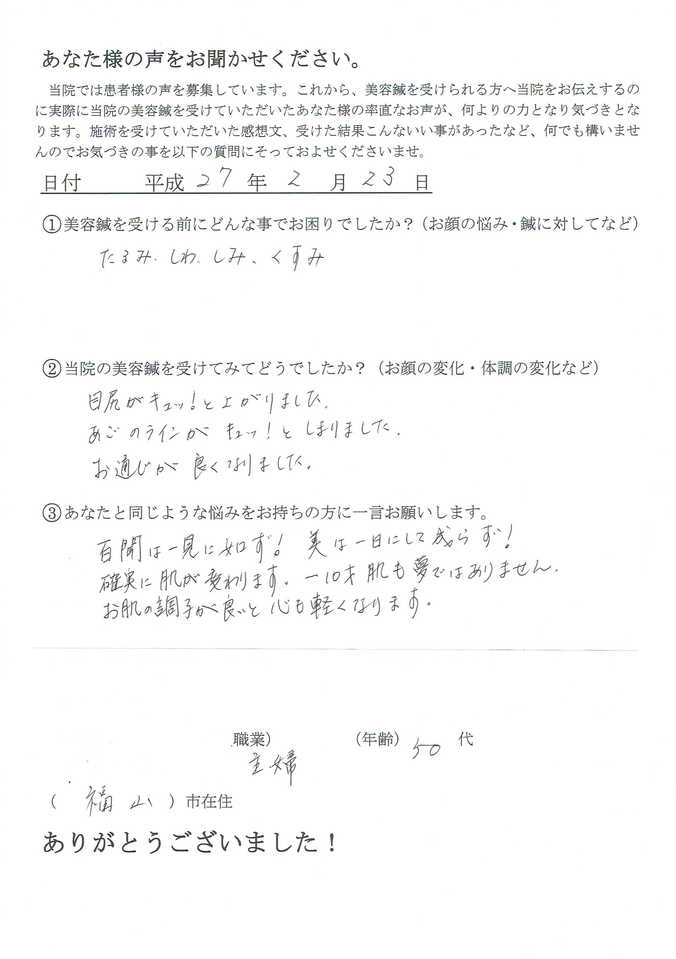 あなた様の声をお聞かせください。
当院では患者様の声を募集しています。これから、美容鍼を受けられる方へ当院をお伝えするの
に実際に当院の美容鍼を受けていただいたあなた様の率直なお声が、何よりの力となり気づきとな
ります。施術を受けていただいた感想文、受けた結果こんないい事があったなど、何でも構いませ
んのでお気づきの事を以下の質問にそっておよせくださいませ。
日付 平成 27 年 2 月 23 日
①美容鍼を受ける前にどんな事でお困りでしたか?(お顔の悩み・鍼に対してなど)
たるみ、しわ、しみ、くすみ
②当院の美容鍼を受けてみてどうでしたか?(お顔の変化・体調の変化など)
目尻がキュッ!と上がりました。
あごのラインがキュッ!としまりました。
お通じが良くなりました。
③あなたと同じような悩みをお持ちの方に一言お願いします。
百聞は一見に如ず! 美は一日にして成らず!
確実に肌が変わります。-10才肌も夢ではありません。
お肌の調子が良いと心も軽くなります。
職業) (年齢) 50 代
主婦
( 福山 )市在住
ありがとうございました!